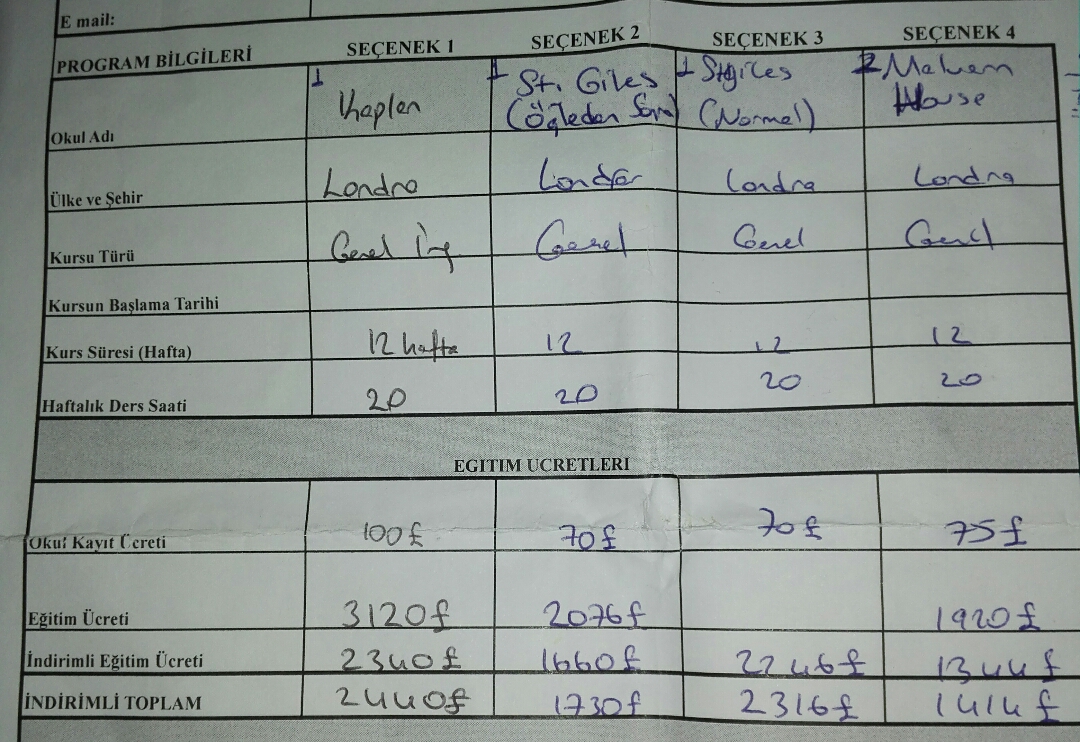 E mail:
PROGRAM BİLGİLERİ SEÇENEK 1 SEÇENEK 2 SEÇENEK 3 SEÇENEK 4
1 1 St. Giles 1 Stgiles 2 Malvern
Okul Adı Kaplan (Öğleden Son) (Normal) House
Ülke ve Şehir Londra Londra Londra Londra
Kursu Türü Genel İng Genel Genel Genel
Kursun Başlama Tarihi
Kurs Süresi (Hafta) 12 hafta 12 12 12
Haftalık Ders Saati 20 20 20 20
EGITIM UCRETLERI
Okul Kayıt Ücreti 100£ 70£ 70£ 75£
Eğitim Ücreti 3120£ 2076£ 1920£
İndirimli Eğitim Ücreti 2340£ 1660£ 2246£ 1344£
İNDİRİMLİ TOPLAM 2440£ 1730£ 2316£ 1414£